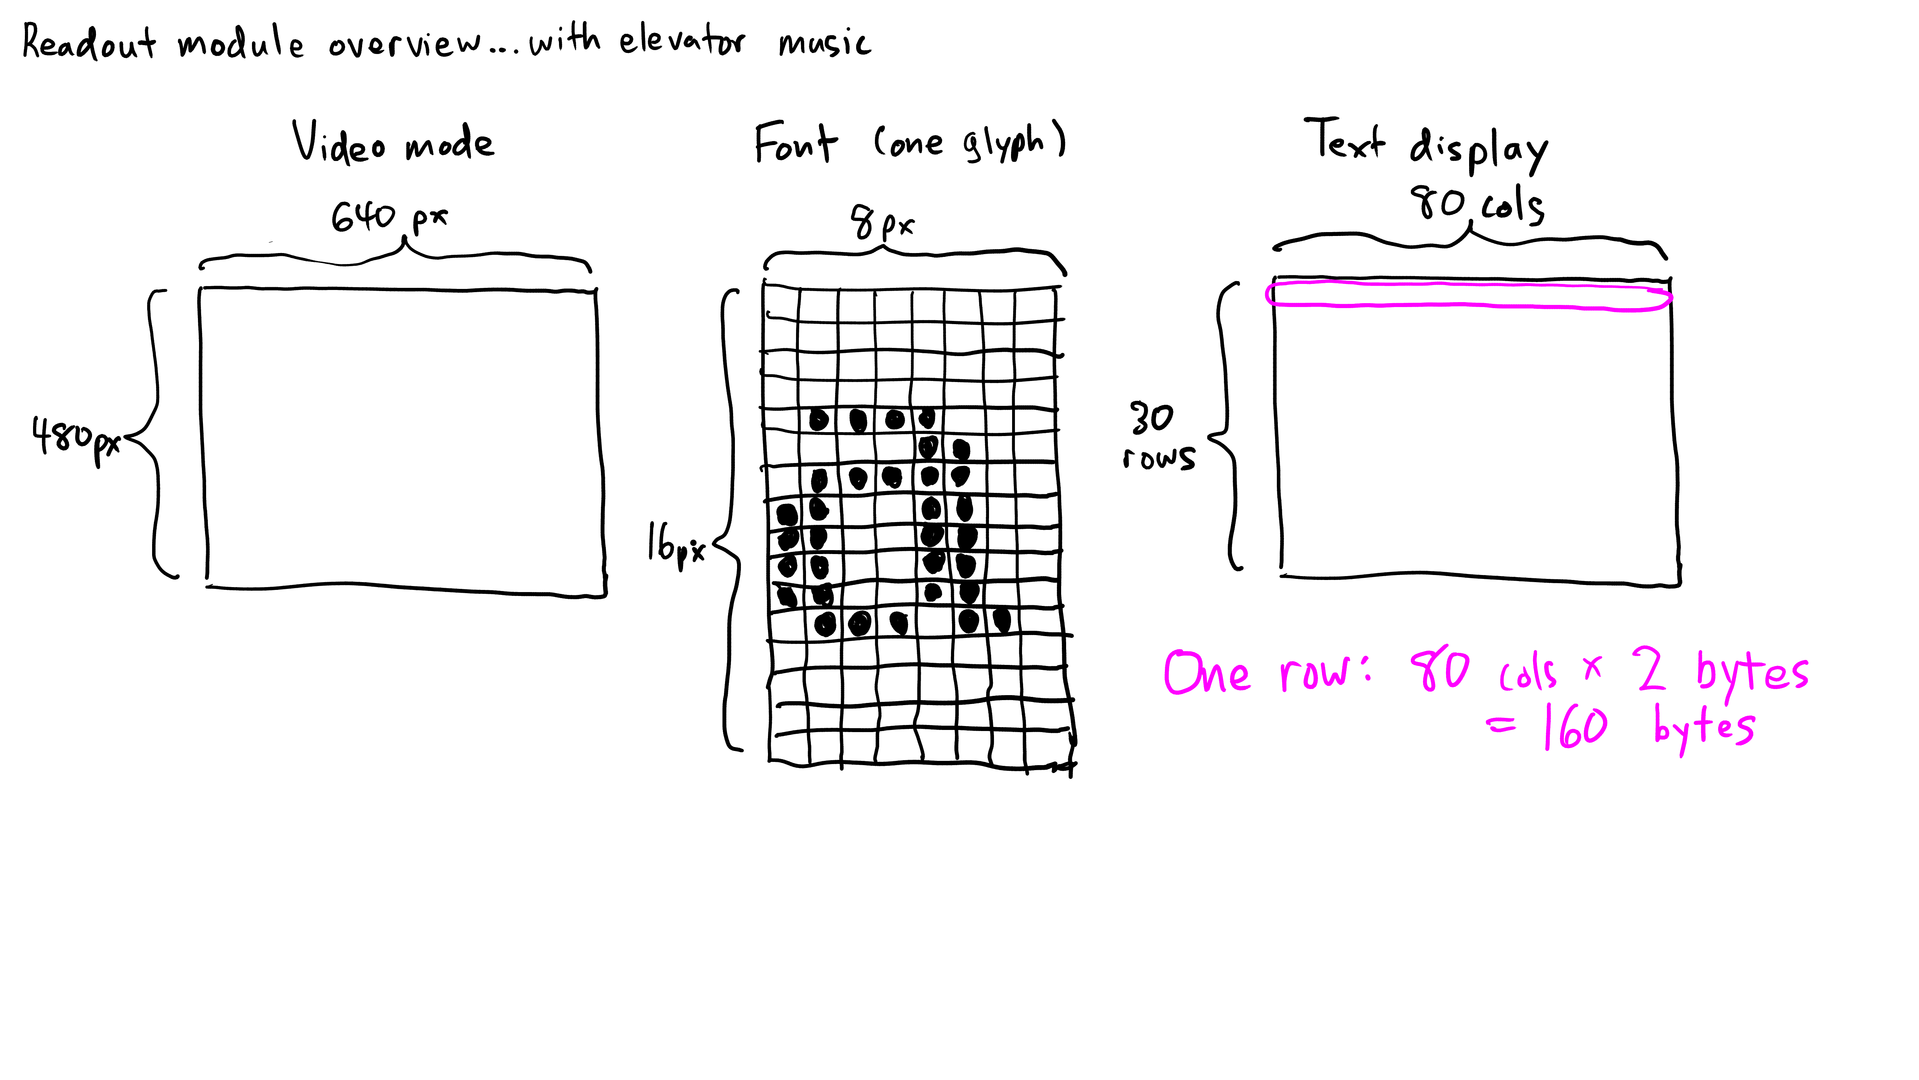 Readout module overview...with elevator music
Video mode
640 px
480px
Font (one glyph)
8px
16px
Text display
80 cols
30
rows
One row: 80 cols x 2 bytes
= 160 bytes